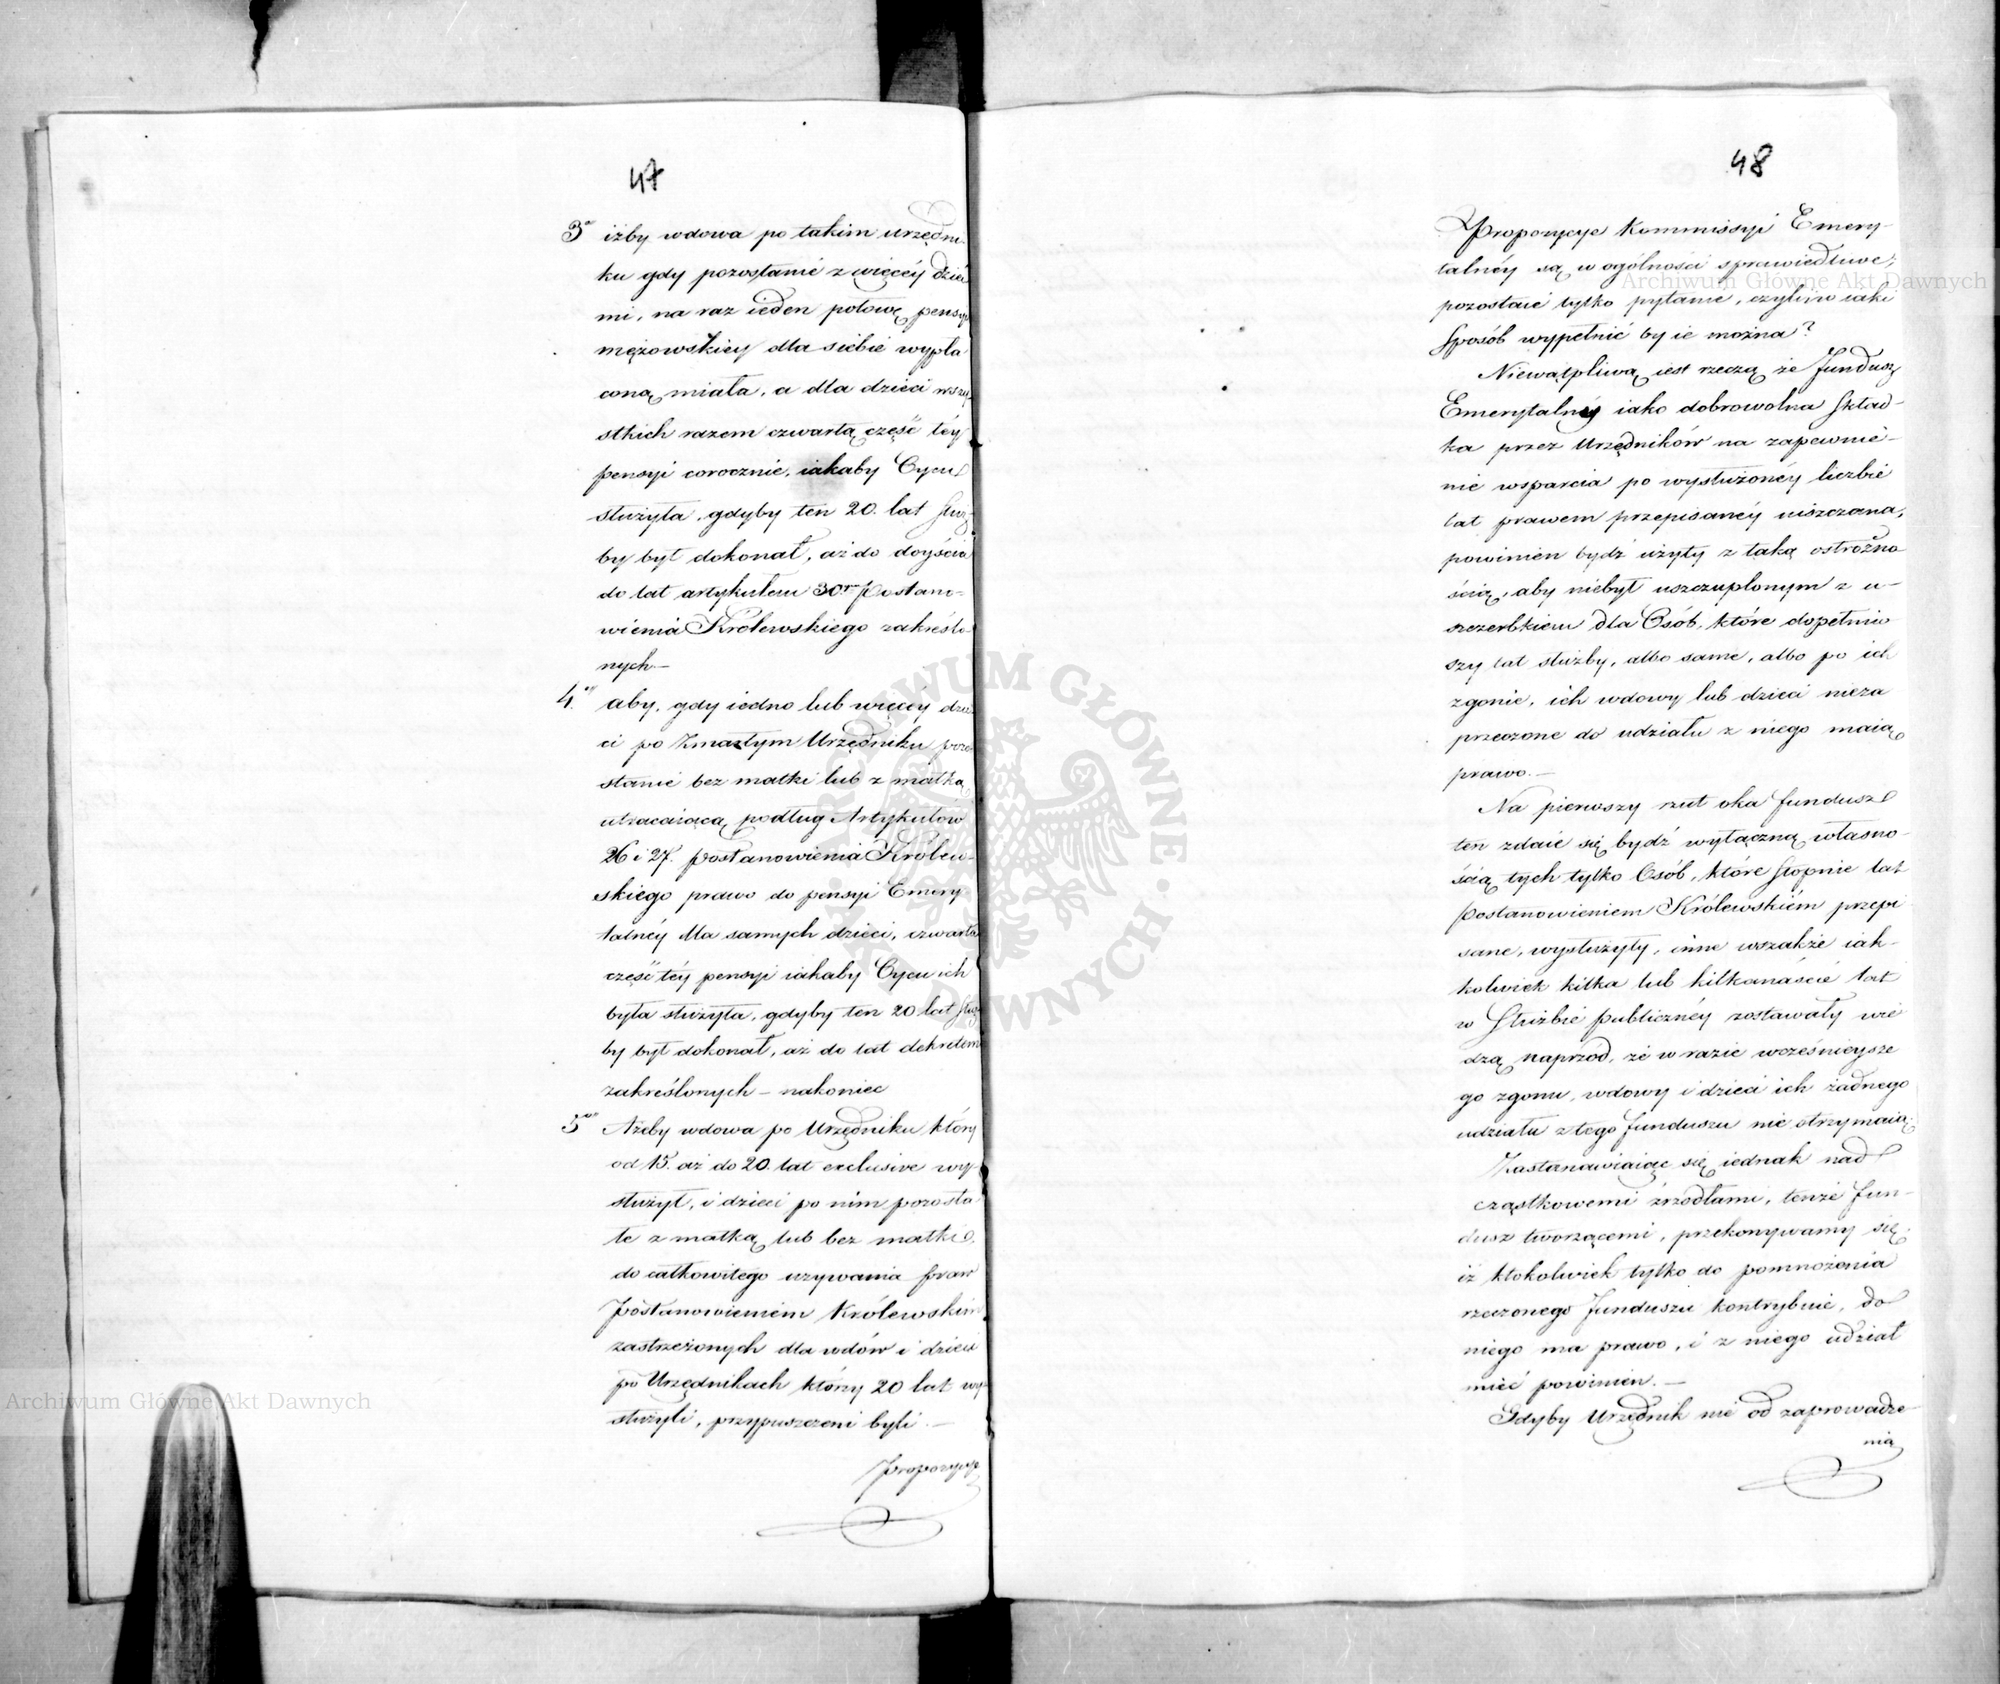 47
3o iżby wdowa po takim urzędni-
ku gdy pozostanie z więcéy dzieć
mi, na raz ieden połowę pensyi
mężowskiey dla siebie wypła
coną miała, a dla dzieci wszy-
stkich razem czwartą część téy
pensyi corocznie, iakaby Oycu
służyła, gdyby ten 20. lat służ-
by był dokonał, aż do doyścia
do lat artykułem 30ym Postano-
wienia Królewskiego zakreślo-
nych.—
4.o aby, gdy iedno lub więcéy dzie-
ci po zmarłym Urzędniku pozo-
stanie bez matki lub z matką
utracaiącą podług Artykułów
26 i 27. Postanowienia Królew-
skiego prawo do pensyi Emery
talnéy dla samych dzieci, czwarta
część téy pensyi iakaby Oycu ich
była służyła, gdyby ten 20 lat służ
by był dokonał, aż do lat dekretem
zakreślonych – nakoniec
5o Ażeby wdowa po Urzędniku, który
od 15. aż do 20. lat exclusive wy-
służył, i dzieci po nim pozosta
łe z matką lub bez matki,
do całkowitego używania praw
Postanowieniem Królewskim
zastrzeżonych dla wdów i dzieci
po Urzędnikach którzy 20 lat wy-
służyli, przypuszczeni byli.—
Propozycye
48
Propozycye Kommissyi Emery-
talnéy są w ogólności sprawiedliwe;
pozostaie tylko pytanie, czyli i w iaki
sposób wypełnić by ie można?
Niewątpliwą iest rzeczą że Fundusz
Emerytalny iako dobrowolna skład-
ka przez Urzędników na zapewnie-
nie wsparcia po wysłużonéy liczbie
lat prawem przepisanéy uiszczana,
powinien bydź użyty z taką ostrożno
ścią, aby niebył uszczuplonym z u-
szczerbkiem dla Osób, które dopełniw
szy lat służby, albo same, albo po ich
zgonie, ich wdowy lub dzieci nieza
przeczone do udziału z niego maią
prawo.—
Na pierwszy rzut oka fundusz
ten zdaie się bydź wyłączną własno-
ścią tych tylko Osób, które stopnie lat
Postanowieniem Królewskiém przepi
sane, wysłużyły, inne wszakże iak-
kolwiek kilka lub kilkanaście lat
w Służbie publicznéy zostawały wie
dzą naprzód, że w razie wcześnieysze
go zgonu, wdowy i dzieci ich żadnego
udziału z tego funduszu nie otrzymaią.
Zastanawiaiąc się iednak nad
cząstkowemi źrzodłami, tenże fun-
dusz tworzącemi, przekonywamy się,
iż ktokolwiek tylko do pomnożenia
rzeczonego funduszu kontrybuie, do
niego ma prawo, i z niego udział
mieć powinien.—
Gdyby Urzędnik nie od zaprowadze
nia
Archiwum Główne Akt Dawnych
Archiwum Główne Akt Dawnych
ARCHIWUM GŁÓWNE AKT DAWNYCH